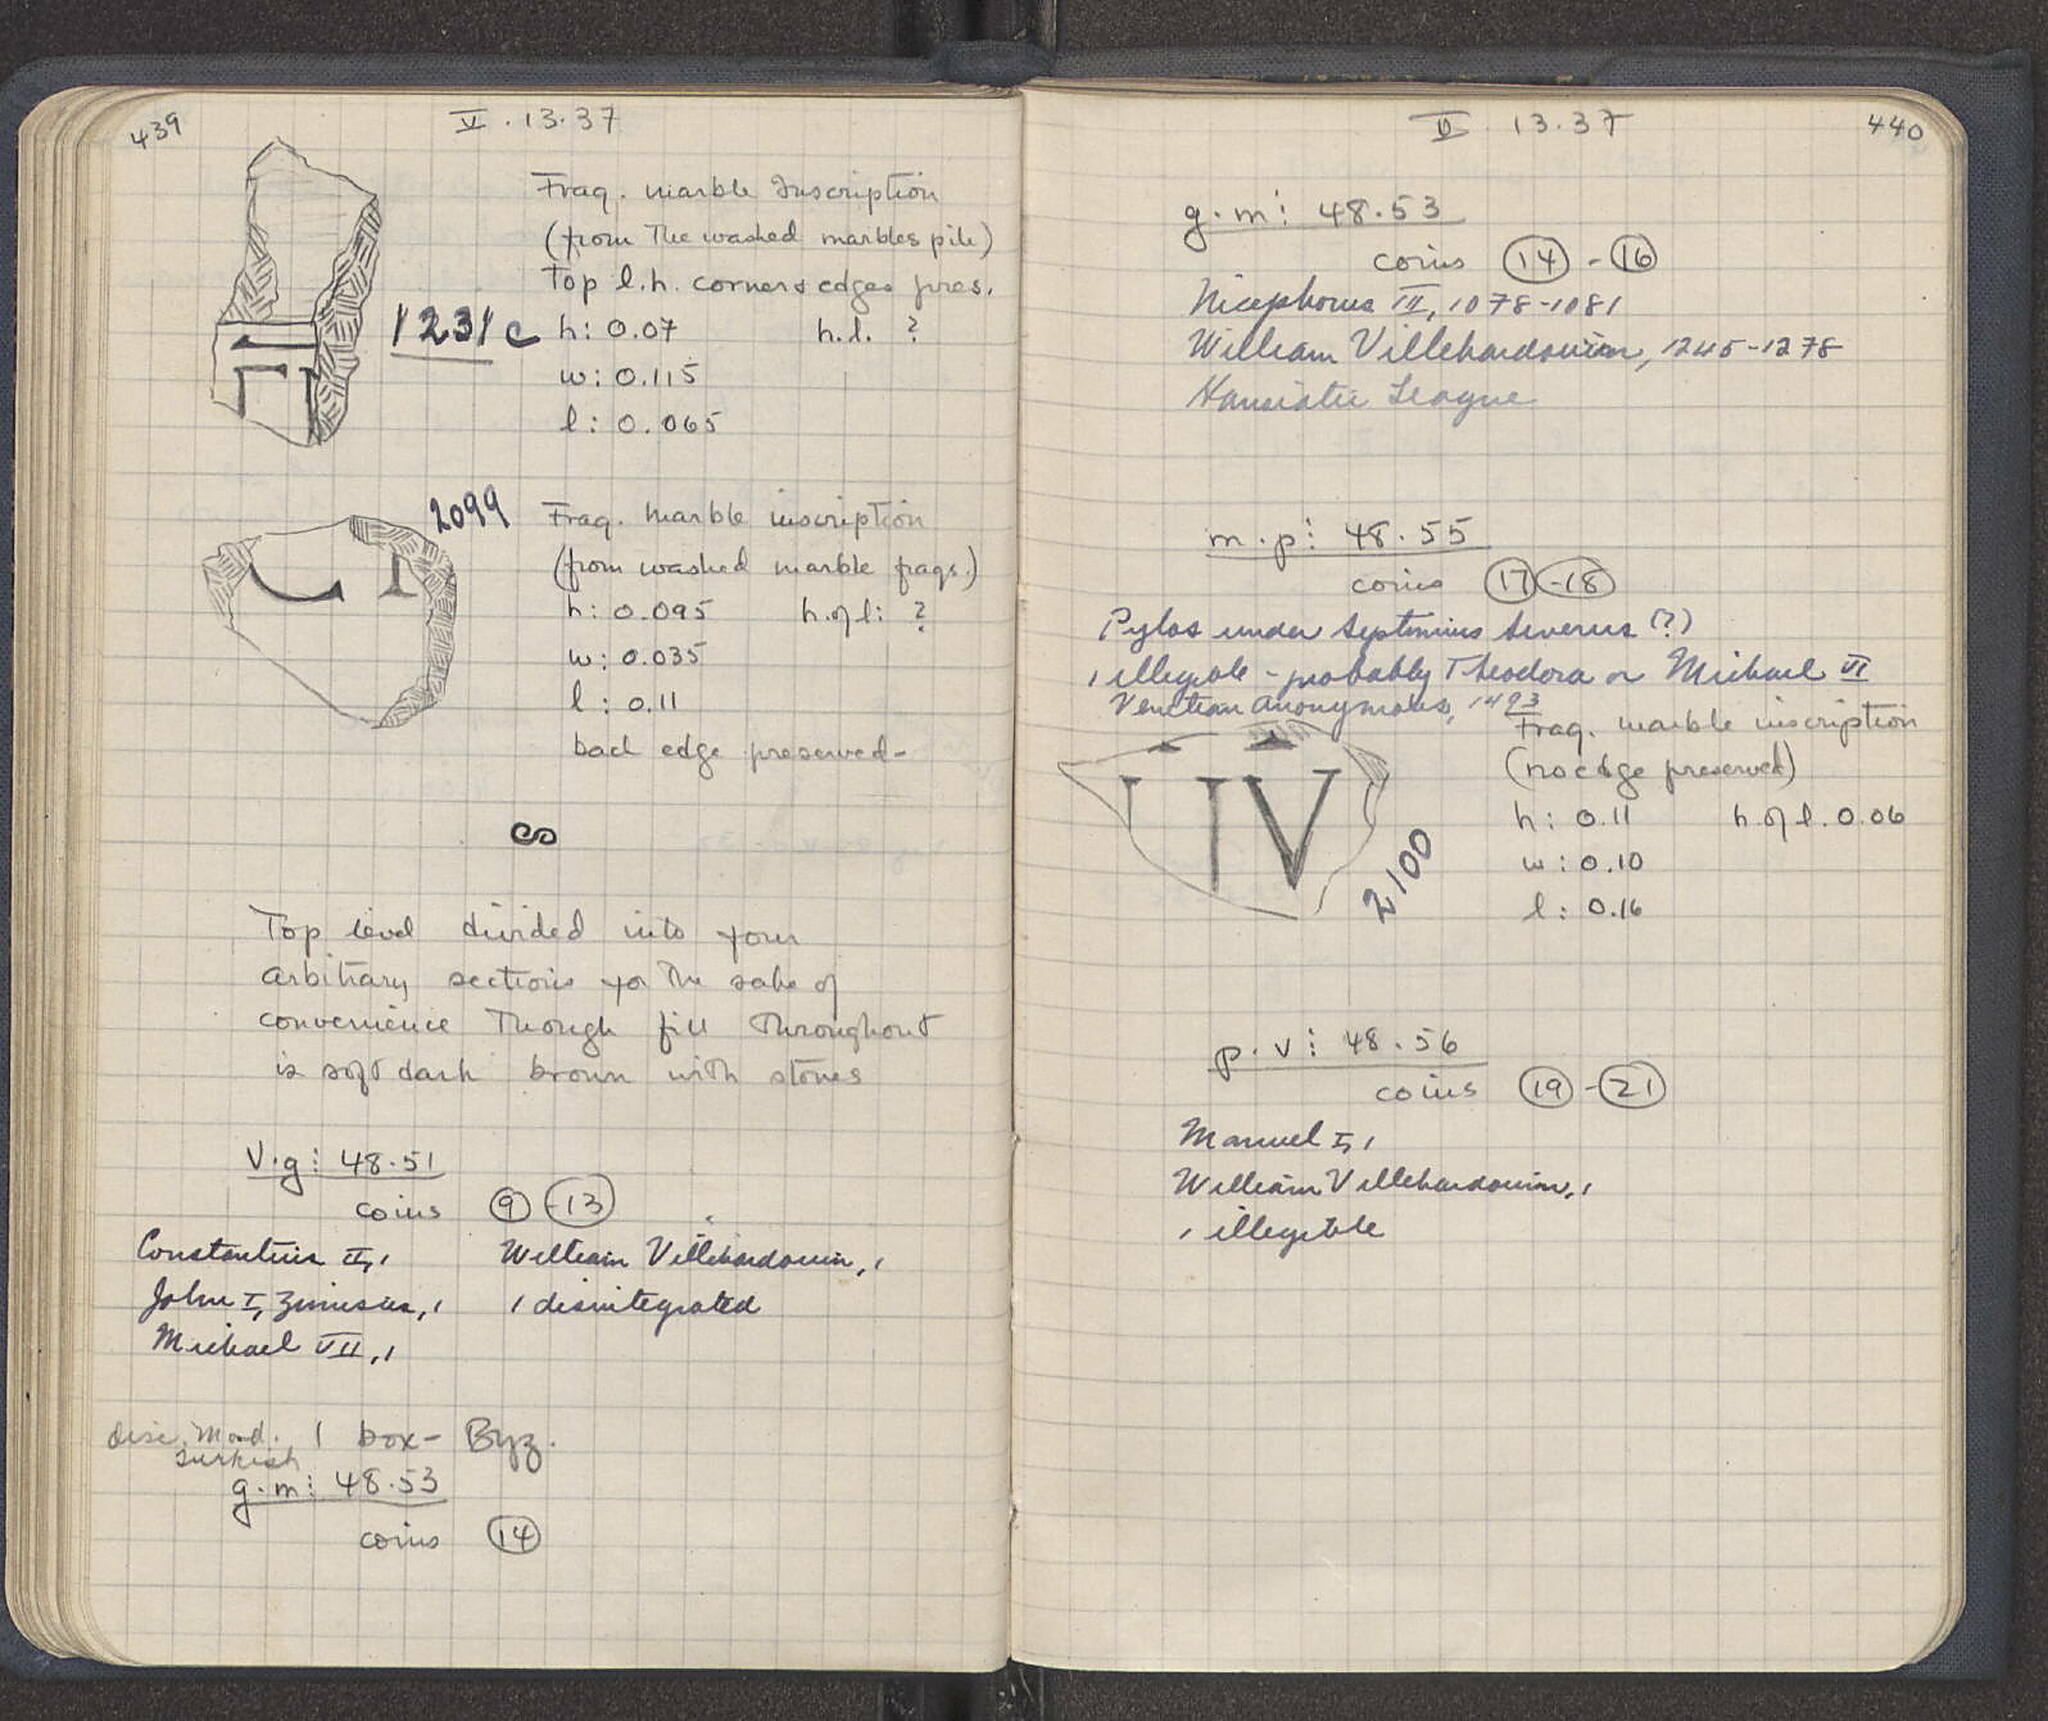 439
V. 13. 37
Frag. marble Inscription
(from The washed marbles pile)
Top l.h. corner & edges pres.
1231c
h: 0.07 h.l. ?
w: 0.115
l: 0.065
2099
Frag. marble inscription
(from washed marble frags.)
h: 0.095 h. of l: ?
w: 0.035
l: 0.11
back edge preserved-
Top level divided into four
arbitrary sections for The sake of
convenience Though fill Throughout
is soft dark brown with stones
V.g: 48.51
coins 9 - 13
Constantius II, 1 William Villehardouin, 1
John I, Zimisces, 1 1 disintegrated
Michael VII, 1
disc. Mod. 1 box- Byz.
Turkish
g.m: 48.53
coins 14
V 13.37
440
g.m: 48.53
coins 14 - 16
Nicephorus III, 1078-1081
William Villehardouin, 1245-1278
Hanseatic League
m.p: 48.55
coins 17 - 18
Pylos under Septimius Severus (?)
1 illegible - probably Theodora or Michael VI
Venetian Anonymous, 1493
Frag. marble inscription
(no edge preserved)
h: 0.11 h. of l. 0.06
w: 0.10
l: 0.16
IV
2100
p.v: 48.56
coins 19 - 21
Manuel I, 1
William Villehardouin, 1
1 illegible